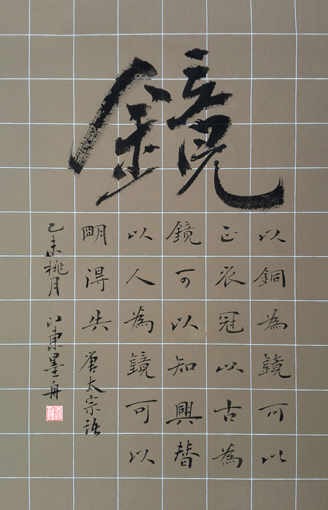 鏡
以銅為鏡可以
正衣冠以古為
鏡可以知興替
以人為鏡可以
明得失唐太宗語
乙未桃月江東墨舟